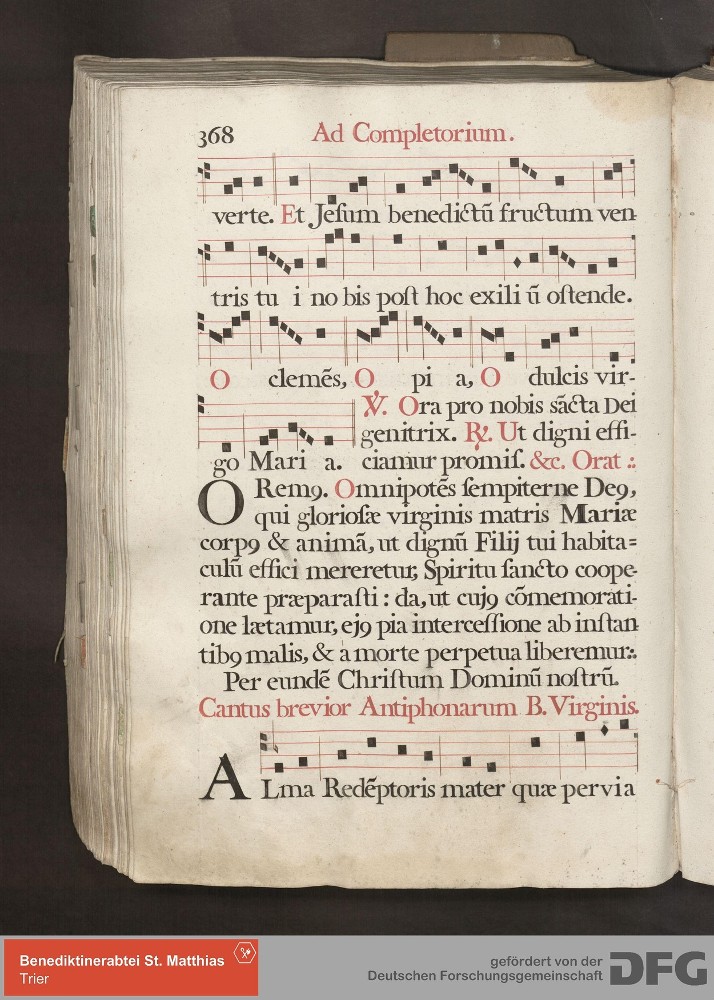 368 Ad Completorium.
verte. Et Jeſum benedictū fructum ven
tris tu i no bis poſt hoc exili ū oſtende.
O clemēs, O pi a, O dulcis vir-
℣. Ora pro nobis sācta Dei
genitrix. ℟. Ut digni effi-
go Mari a. ciamur promiſ. &c. Orat .:
O Remꝯ. Omnipotēs ſempiterne Deꝯ,
qui glorioſæ virginis matris Mariæ
corpꝯ & animā, ut dignū Filij tui habita=
culū effici mereretur, Spiritu ſancto coope-
rante præparaſti : da, ut cujꝯ cōmemorati-
one lætamur, ejꝯ pia interceſſione ab inſtan
tibꝯ malis, & à morte perpetua liberemur:.
Per eundē Chriſtum Dominū noſtrū.
Cantus brevior Antiphonarum B. Virginis.
A Lma Redēptoris mater quæ per via
Benediktinerabtei St. Matthias
Trier
gefördert von der
Deutschen Forschungsgemeinschaft DFG